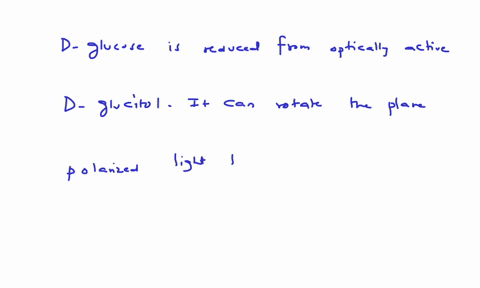 D- glucose is reduced from optically active
D- glucitol. It can rotate the plane
polarized light